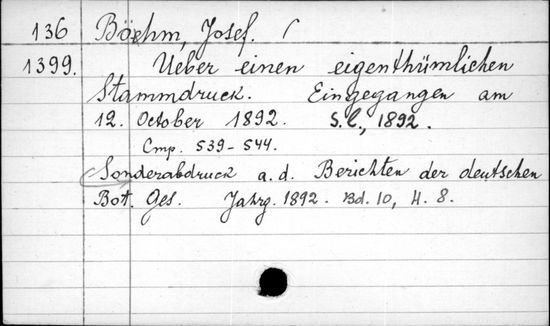 136 Böehm, Josef. (
1399. Ueber einen eigenthümlichen
Stammdruck. Eingegangen am
12. October 1892. S.l., 1892.
Стр. 539-544.
(Sonderabdruck a. d. Berichten der deutschen
Bot. Ges. Jahrg. 1892. Bd. 10, H. 8.